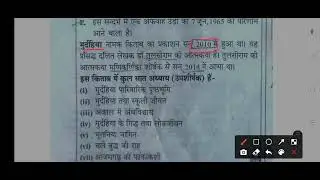 इस सन्दर्भ में एक अफवाह उड़ी की 7 जून, 1965 का परिणाम
आने वाला है।
मुर्दहिया नामक किताब का प्रकाशन सन् 2010 में हुआ था। यह
प्रसिद्ध दलित लेखक डॉ तुलसीराम की आत्मकथा है। तुलसीराम की
आत्मकथा मणिकर्णिका शीर्षक से सन् 2014 में आया था।
इस किताब में कुल सात अध्याय (उपशीर्षक) हैं-
(i) मुर्दहिया पारिवारिक पृष्ठभूमि
(ii) मुर्दहिया तथा स्कूली जीवन
(iii) अकाल में अंधविश्वास
(iv) मुर्दहिया के गिद्ध तथा लोकजीवन
(v) भुतनिया नागिन
(vi) चले बुद्ध की राह
(vii) आजमगढ़ की फाकाकशी